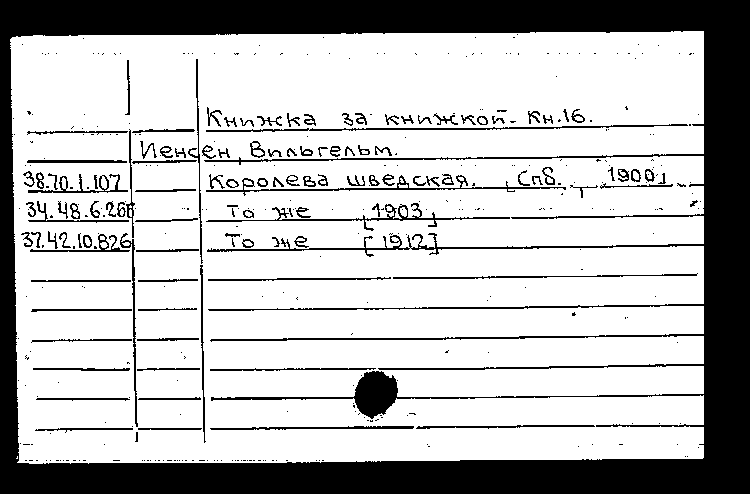 Книжка за книжкой. Кн.16.
Иенсен, Вильгельм.
38.70.1.107 Королева шведская. [Спб., 1900]
34.48.6.266 То же [1903]
37.42.10.826 То же [1912]